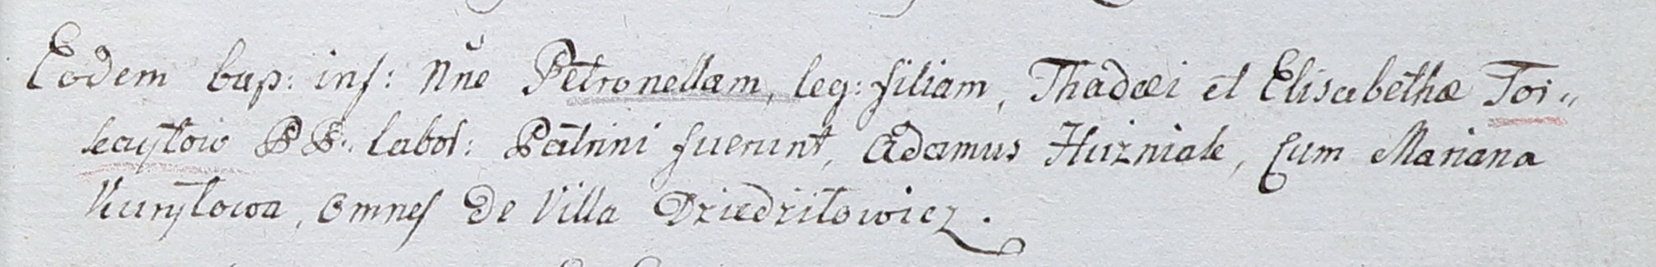 Eodem bap: inf: Nne Petronellam, leg: filiam, Thadæi et Elisabethæ Toi„
PP: labor: Patrini fuerunt, Adamus Huzniak, Cum Mariana
Kuryłowa, omnes de Villa Dziedziłowicz.